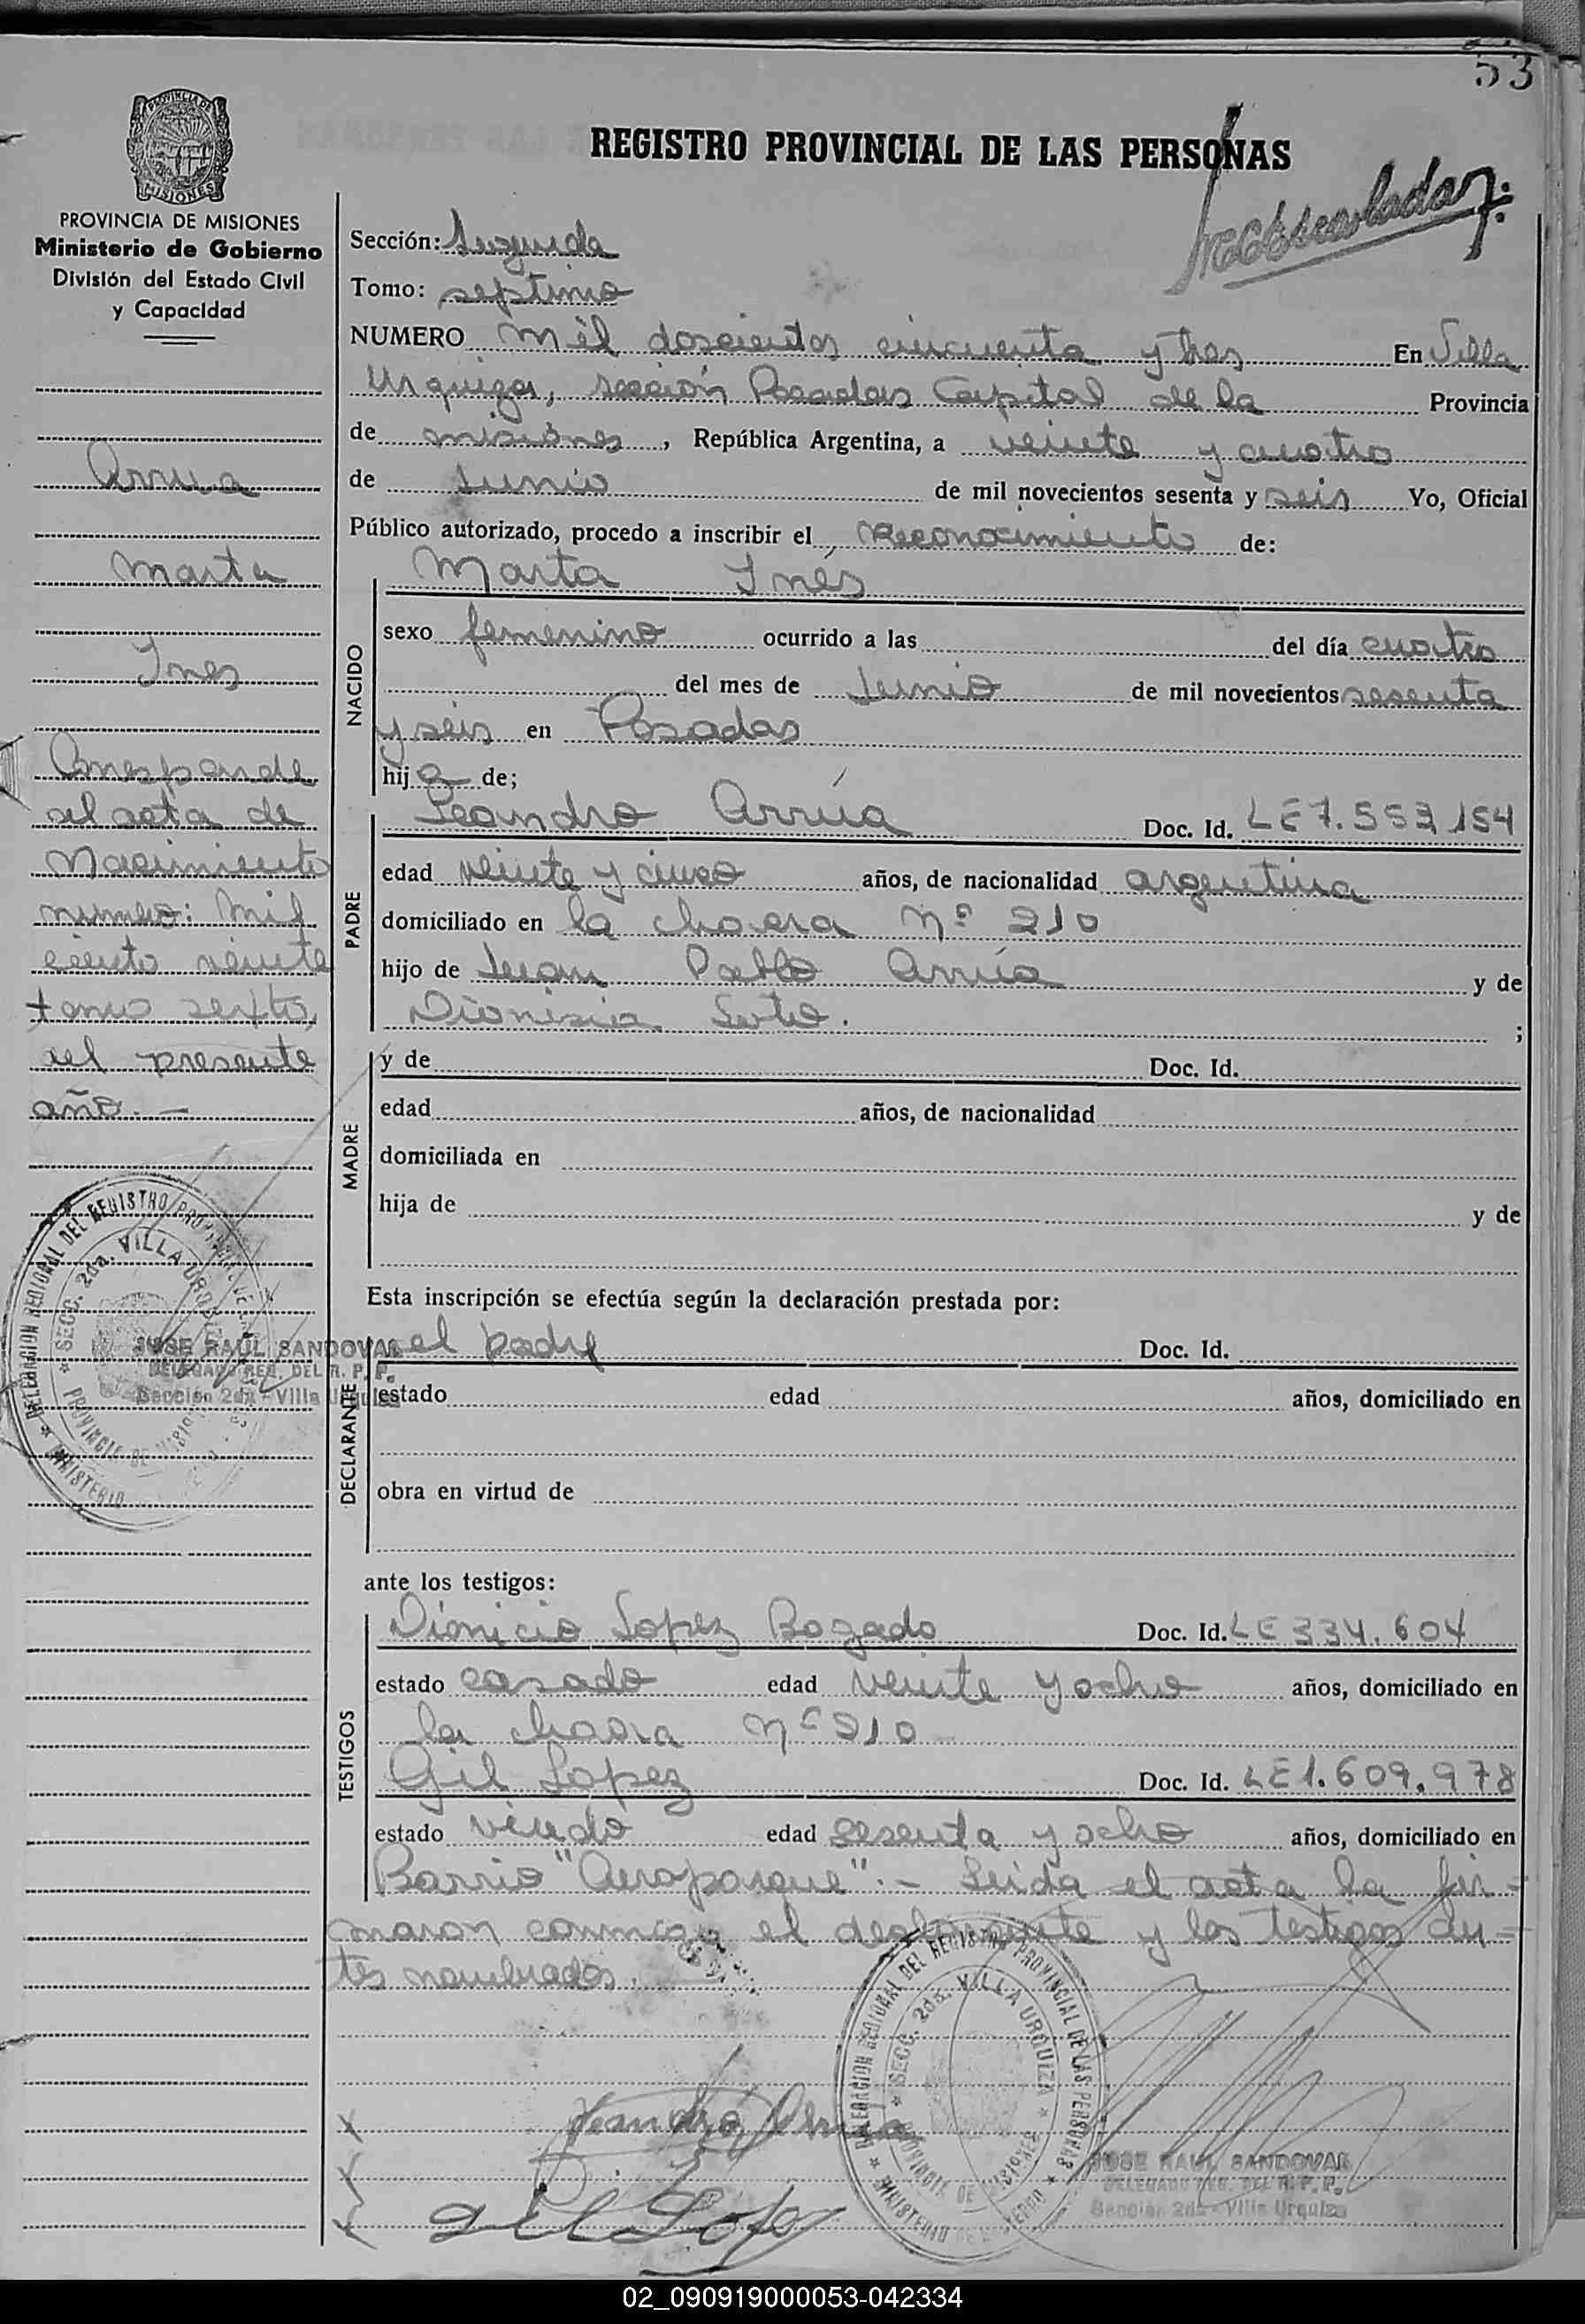 53
REGISTRO PROVINCIAL DE LAS PERSONAS
PROVINCIA DE
MISIONES
PROVINCIA DE MISIONES
Ministerio de Gobierno
División del Estado Civil
y Capacidad
Arrua
Marta
Ines
Corresponde
al acta de
Nacimiento
numero: Mil
ciento veinte
tomo sexto,
del presente
año. -
DELEGACION REGIONAL DEL REGISTRO PROVINCIAL DE LAS PERSONAS
SECC. 2da. VILLA URQUIZA
PROVINCIA DE MISIONES
MINISTERIO
JOSE RAUL SANDOVAL
DELEGADO REG. DEL R. P. P.
Sección 2da - Villa Urquiza
Sección: Segunda
Tomo: septimo
NUMERO Mil doscientos cincuenta y tres En Villa
Urquiza, sección Posadas Capital de la Provincia
de misiones, República Argentina, a veinte y cuatro
de Junio de mil novecientos sesenta y seis Yo, Oficial
Público autorizado, procedo a inscribir el Reconocimiento de:
Marta Inés
NACIDO
sexo femenino ocurrido a las del día cuatro
del mes de Junio de mil novecientos sesenta
y seis en Posadas
hija de;
PADRE
Leandro Arrúa Doc. Id. LE 7.553.154
edad veinte y cinco años, de nacionalidad argentina
domiciliado en la chacra Nº 210
hijo de Juan Pablo Arrúa y de
Dionisia Soto. ;
MADRE
y de Doc. Id.
edad años, de nacionalidad
domiciliada en
hija de y de
Esta inscripción se efectúa según la declaración prestada por:
DECLARANTE
el padre Doc. Id.
estado edad años, domiciliado en
obra en virtud de
ante los testigos:
TESTIGOS
Dionicio Lopez Bogado Doc. Id. LE 334.604
estado casado edad veinte y ocho años, domiciliado en
la chacra Nº 210
Gil Lopez Doc. Id. LE 1.609.978
estado viudo edad sesenta y ocho años, domiciliado en
Barrio "Aeroparque".- Leida el acta la fir-
maron conmigo el declarante y los testigos an-
tes nombrados.
Leandro Arrua
Gil Lopez
DELEGACION REGIONAL DEL REGISTRO PROVINCIAL DE LAS PERSONAS
SECC. 2da. VILLA URQUIZA
PROVINCIA DE MISIONES
MINISTERIO DE GOBIERNO
JOSE RAUL SANDOVAL
DELEGADO REG. DEL R. P. P.
Sección 2da - Villa Urquiza
02_090919000053-042334